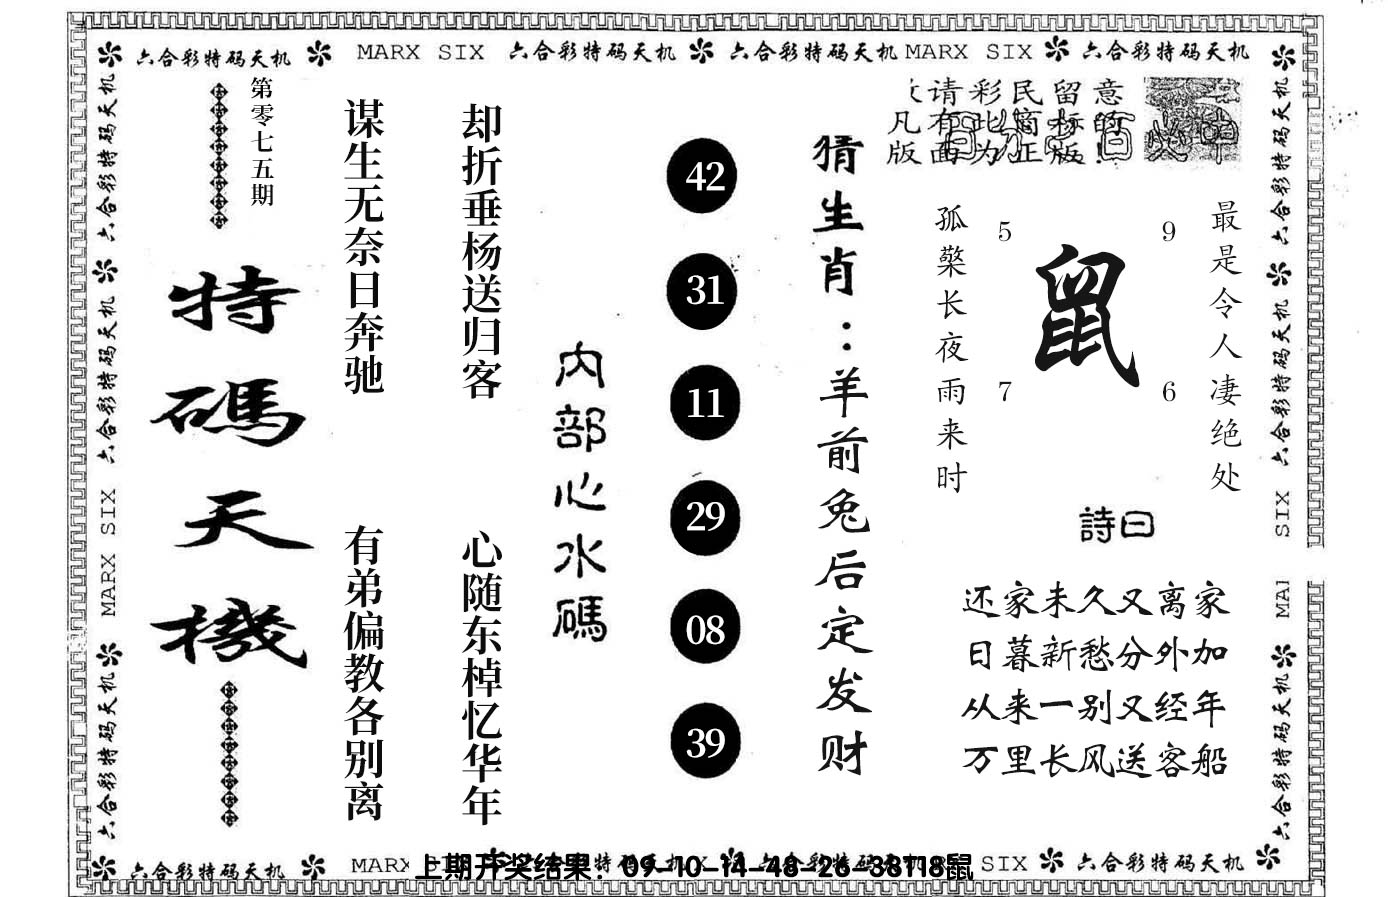 六合彩特码天机 MARX SIX 六合彩特码天机 六合彩特码天机 MARX SIX 六合彩特码天机
六合彩特码天机 六合彩特码天机 MARX SIX 六合彩特码天机
第零七五期
特碼天機
谋生无奈日奔驰
有弟偏教各别离
却折垂杨送归客
心随东棹忆华年
内部心水碼
42
31
11
29
08
39
猜生肖：羊前兔后定发财
请彩民留意
凡有此窗标的
版面为正版!
孤檠长夜雨来时
5
9
鼠
7
6
最是令人凄绝处
詩曰
还家未久又离家
日暮新愁分外加
从来一别又经年
万里长风送客船
六合彩特码天机 六合彩特码天机 SIX 六合彩特码天机
六合彩特码天机 MARX
上期开奖结果：09-10-14-48-26-38T18鼠
SIX 六合彩特码天机